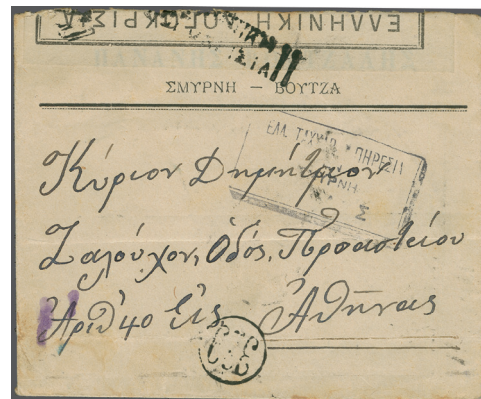 ΕΛΛΗΝΙΚΗ ΛΟΓΟΚΡΙΣΙΑ
ΣΜΥΡΝΗ — ΒΟΥΤΖΑ
ΕΛΛ. ΤΑΧΥΔΡ. ΥΠΗΡΕΣΙΑ
ΣΜΥΡΝΗ
Σ
Κύριον Δημήτριον
Ζαλούχον, Ὁδός, Προαστείου
Ἀριθ 40 Εἰς Ἀθήνας